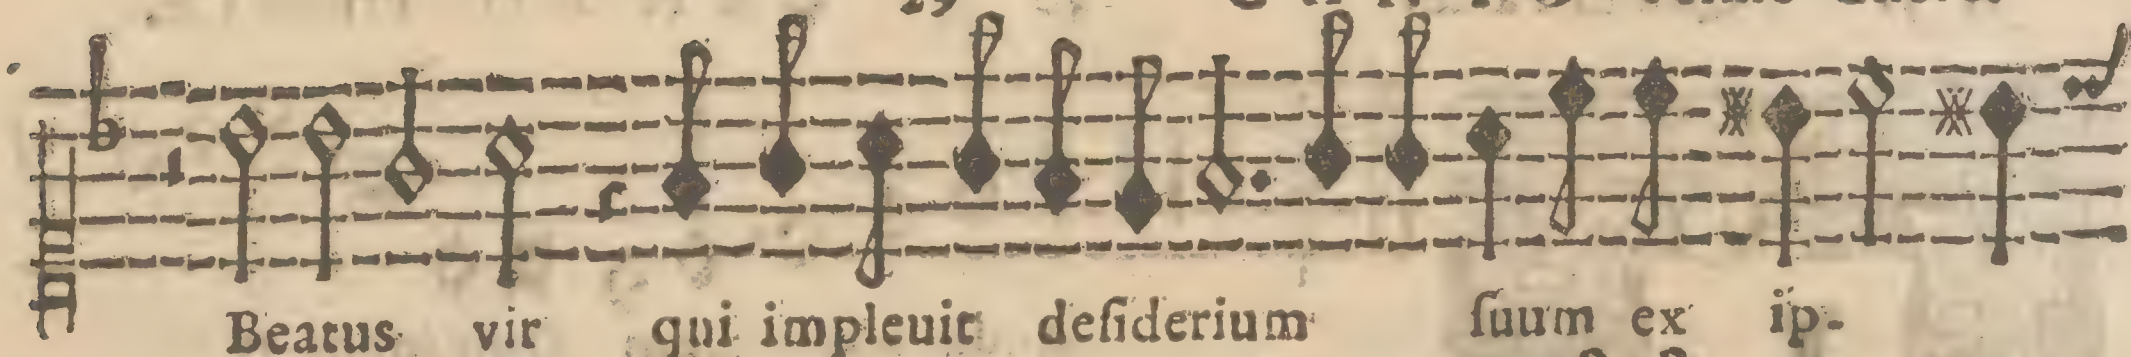 Beatus vir qui impleuit deſiderium ſuum ex ip-